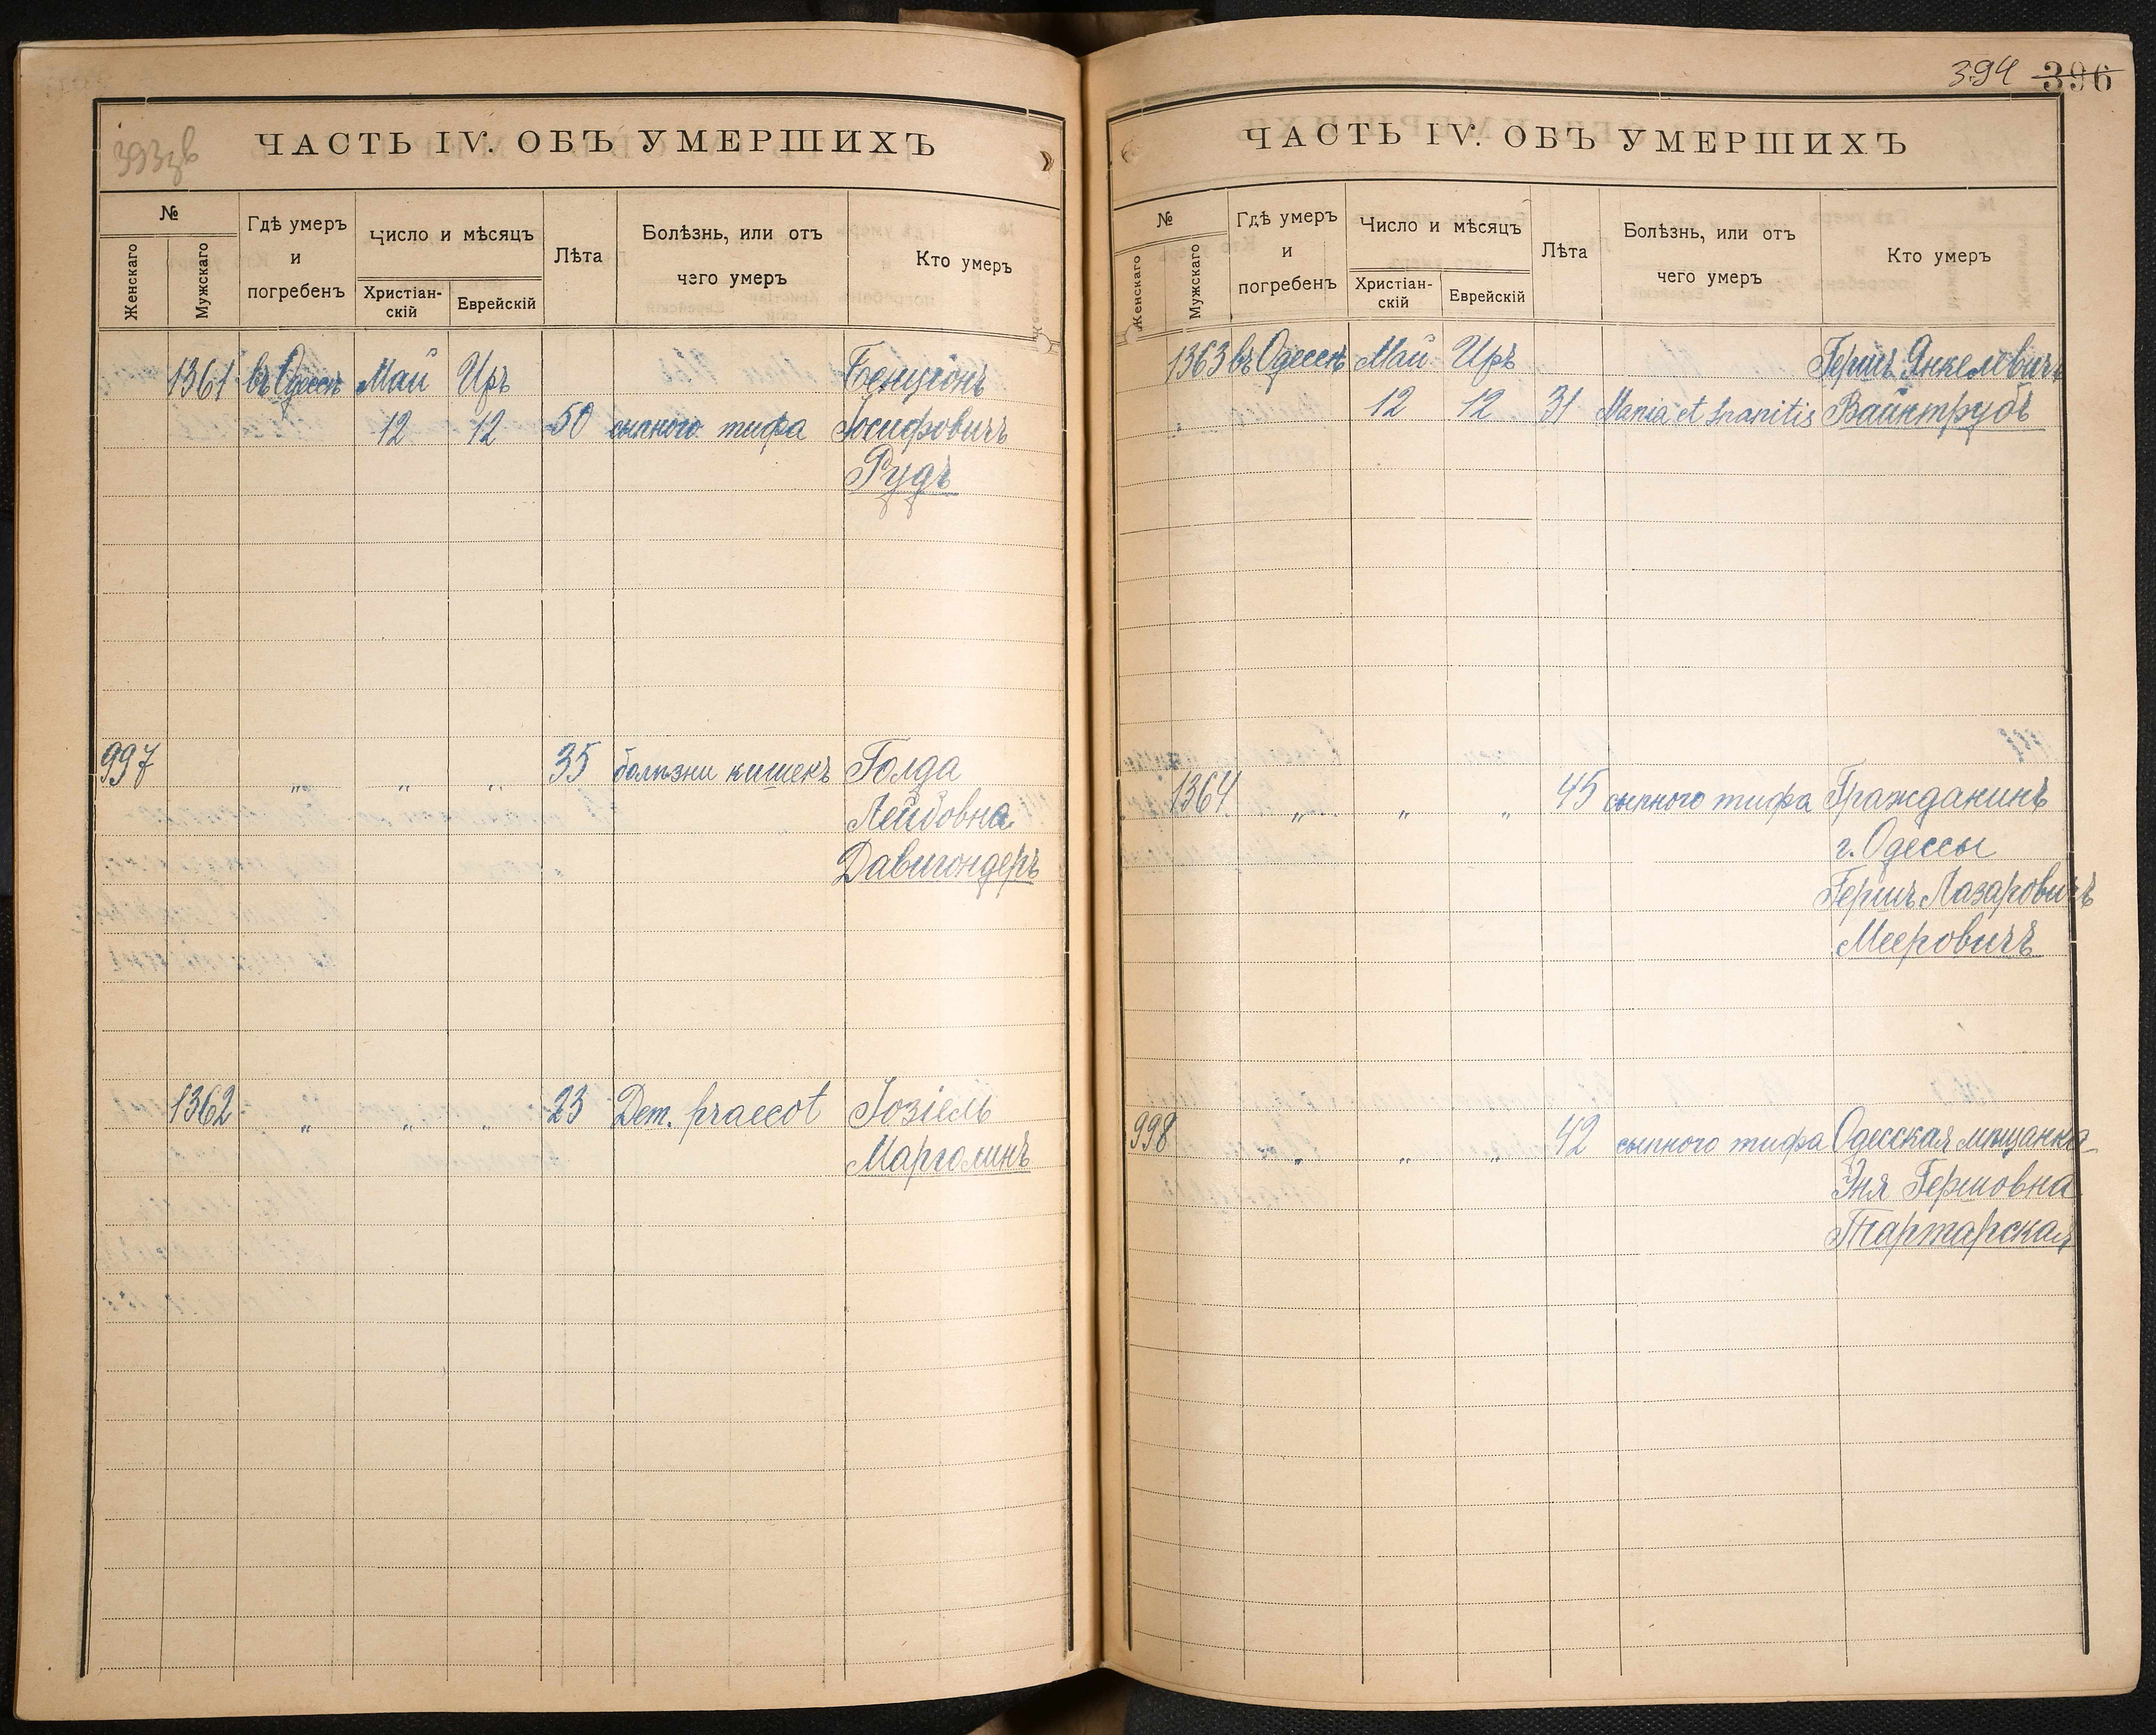 393зв
ЧАСТЬ IV. ОБЪ УМЕРШИХЪ
№
Женскаго
Мужскаго
Гдѣ умеръ
и
погребенъ
Число и мѣсяцъ
Христіан-
скій
Еврейскій
Лѣта
Болѣзнь, или отъ
чего умеръ
Кто умеръ
1361 въ Одессѣ Май Иръ Бенціонъ
12 12 50 сыпного тифа Іосифовичъ
Рудъ
997 " " " 35 болѣзни кишекъ Голда
Лейбовна
Давигондеръ
1362 " " " 23 Dem. praecot Іозіель
Марголинъ
394 396
ЧАСТЬ IV. ОБЪ УМЕРШИХЪ
№
Женскаго
Мужскаго
Гдѣ умеръ
и
погребенъ
Число и мѣсяцъ
Христіан-
скій
Еврейскій
Лѣта
Болѣзнь, или отъ
чего умеръ
Кто умеръ
1363 въ Одессѣ Май Иръ Гершъ Янкелевичъ
12 12 31 Mania et Вайнтрубъ
1364 " " " 45 сыпного тифа Гражданинъ
г. Одессы
Гершъ Лазаровичъ
Мееровичъ
998 " " " 42 сыпного тифа Одесская мѣщанка
Эня Гершовна
Тартарская